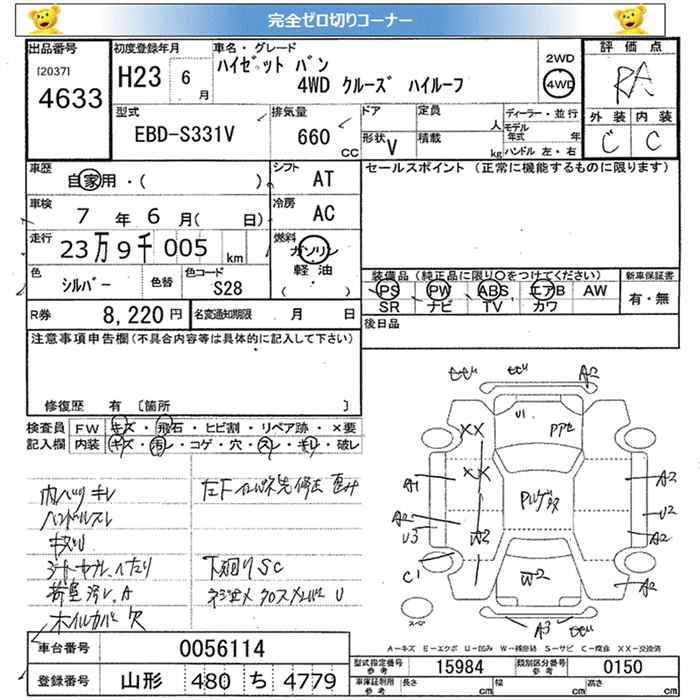 完全ゼロ切りコーナー
出品番号
[2037]
4633
初度登録年月
H23 6月
車名・グレード
ハイゼット バン
4WD クルーズ ハイルーフ
2WD
4WD
評価点
RA
外装 内装
C C
型式
EBD-S331V
排気量
660 CC
ドア
定員 人
形状 V
積載 kg
ディーラー・並行
モデル年式 年
ハンドル 左・右
車歴
自家用・( )
シフト AT
車検
7年 6月( 日)
冷房 AC
走行
23万9千005 km
燃料
ガソリン
軽油
( )
色
シルバー
色替
色コード
S28
R券 8,220円
名変通知期限 月 日
セールスポイント (正常に機能するものに限ります)
装備品 (純正品に限り○をつけてください)
PS PW ABS エアB AW
SR ナビ TV カワ
新車保証書
有・無
後日品
注意事項申告欄(不具合内容等は具体的に記入して下さい)
修復歴 有 〔箇所 〕
検査員記入欄
FW キズ・飛石・ヒビ割・リペア跡・×要
内装 キズ・汚レ・コゲ・穴・スレ・キレ・破レ
内バリ キレ
ハンドルスレ
下廻りSC
ホイルカバー欠
U1
XX
XX
A1
A2
U3
C1
W2
W2
A2
A2
U2
A2
A2
A3
スペア
A-キズ E-エクボ U-凹み W-補修跡 S-サビ C-腐食 XX-交換済
車台番号 0056114
登録番号 山形 480 ち 4779
型式指定番号 参考 15984
類別区分番号 参考 0150
車庫証明用 参考
長さ cm
幅 cm
高さ cm